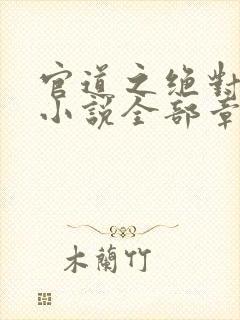 官道之絕對
小說全部章
木蘭竹